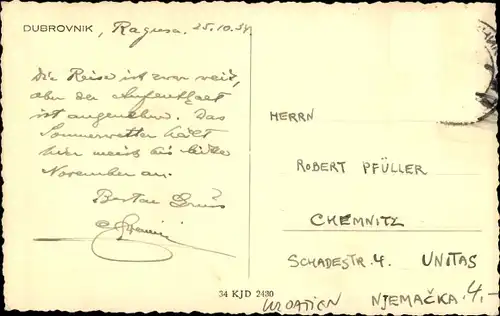 DUBROVNIK, Ragusa. 25.10.34
Die Reise ist zwar weit,
aber der Aufenthalt
ist angenehm. Das
Sommerwetter hält
hier meist bis Mitte
November an.
Besten Gruss
HERRN
ROBERT PFÜLLER
CHEMNITZ
SCHADESTR. 4. UNITAS
NJEMAČKA. 4.-
KROATIEN
34 KJD 2430